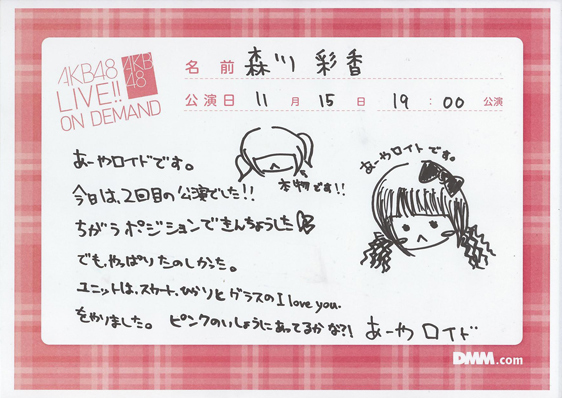 AKB48
LIVE!!
ON DEMAND
AKB
48
名前 森川 彩香
公演日 11月 15日 19:00 公演
あーやロイドです。
今日は、2回目の公演でした!!
ちがうポジションできんちょうした
でも、やっぱりたのしかった。
ユニットは、スカート、ひらりとガラスのI love you.
をやりました。 ピンクのいしょうにあってるかな?!
本物です!!
あーやロイドです。
あーやロイド
DMM.com